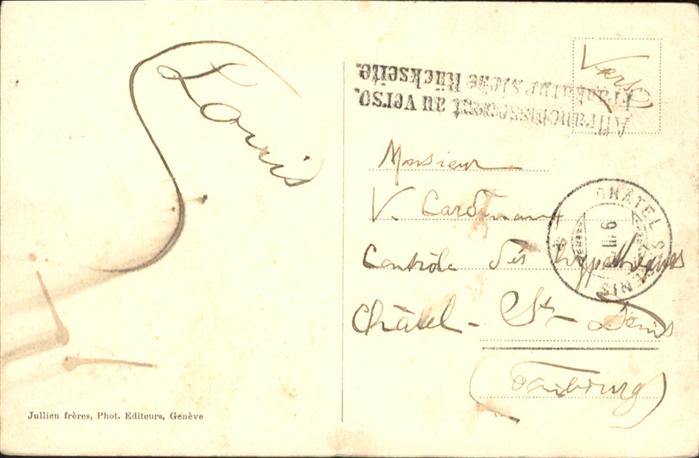 Louis
Jullien frères, Phot. Editeurs, Genève
Affranchissement au verso.
Frankatur siehe Rückseite.
Verso
Monsieur
V. Cardinaux
Contrôle des hypothèques
Châtel - St - Denis
(Fribourg)
CHÂTEL ST DENIS
9 III